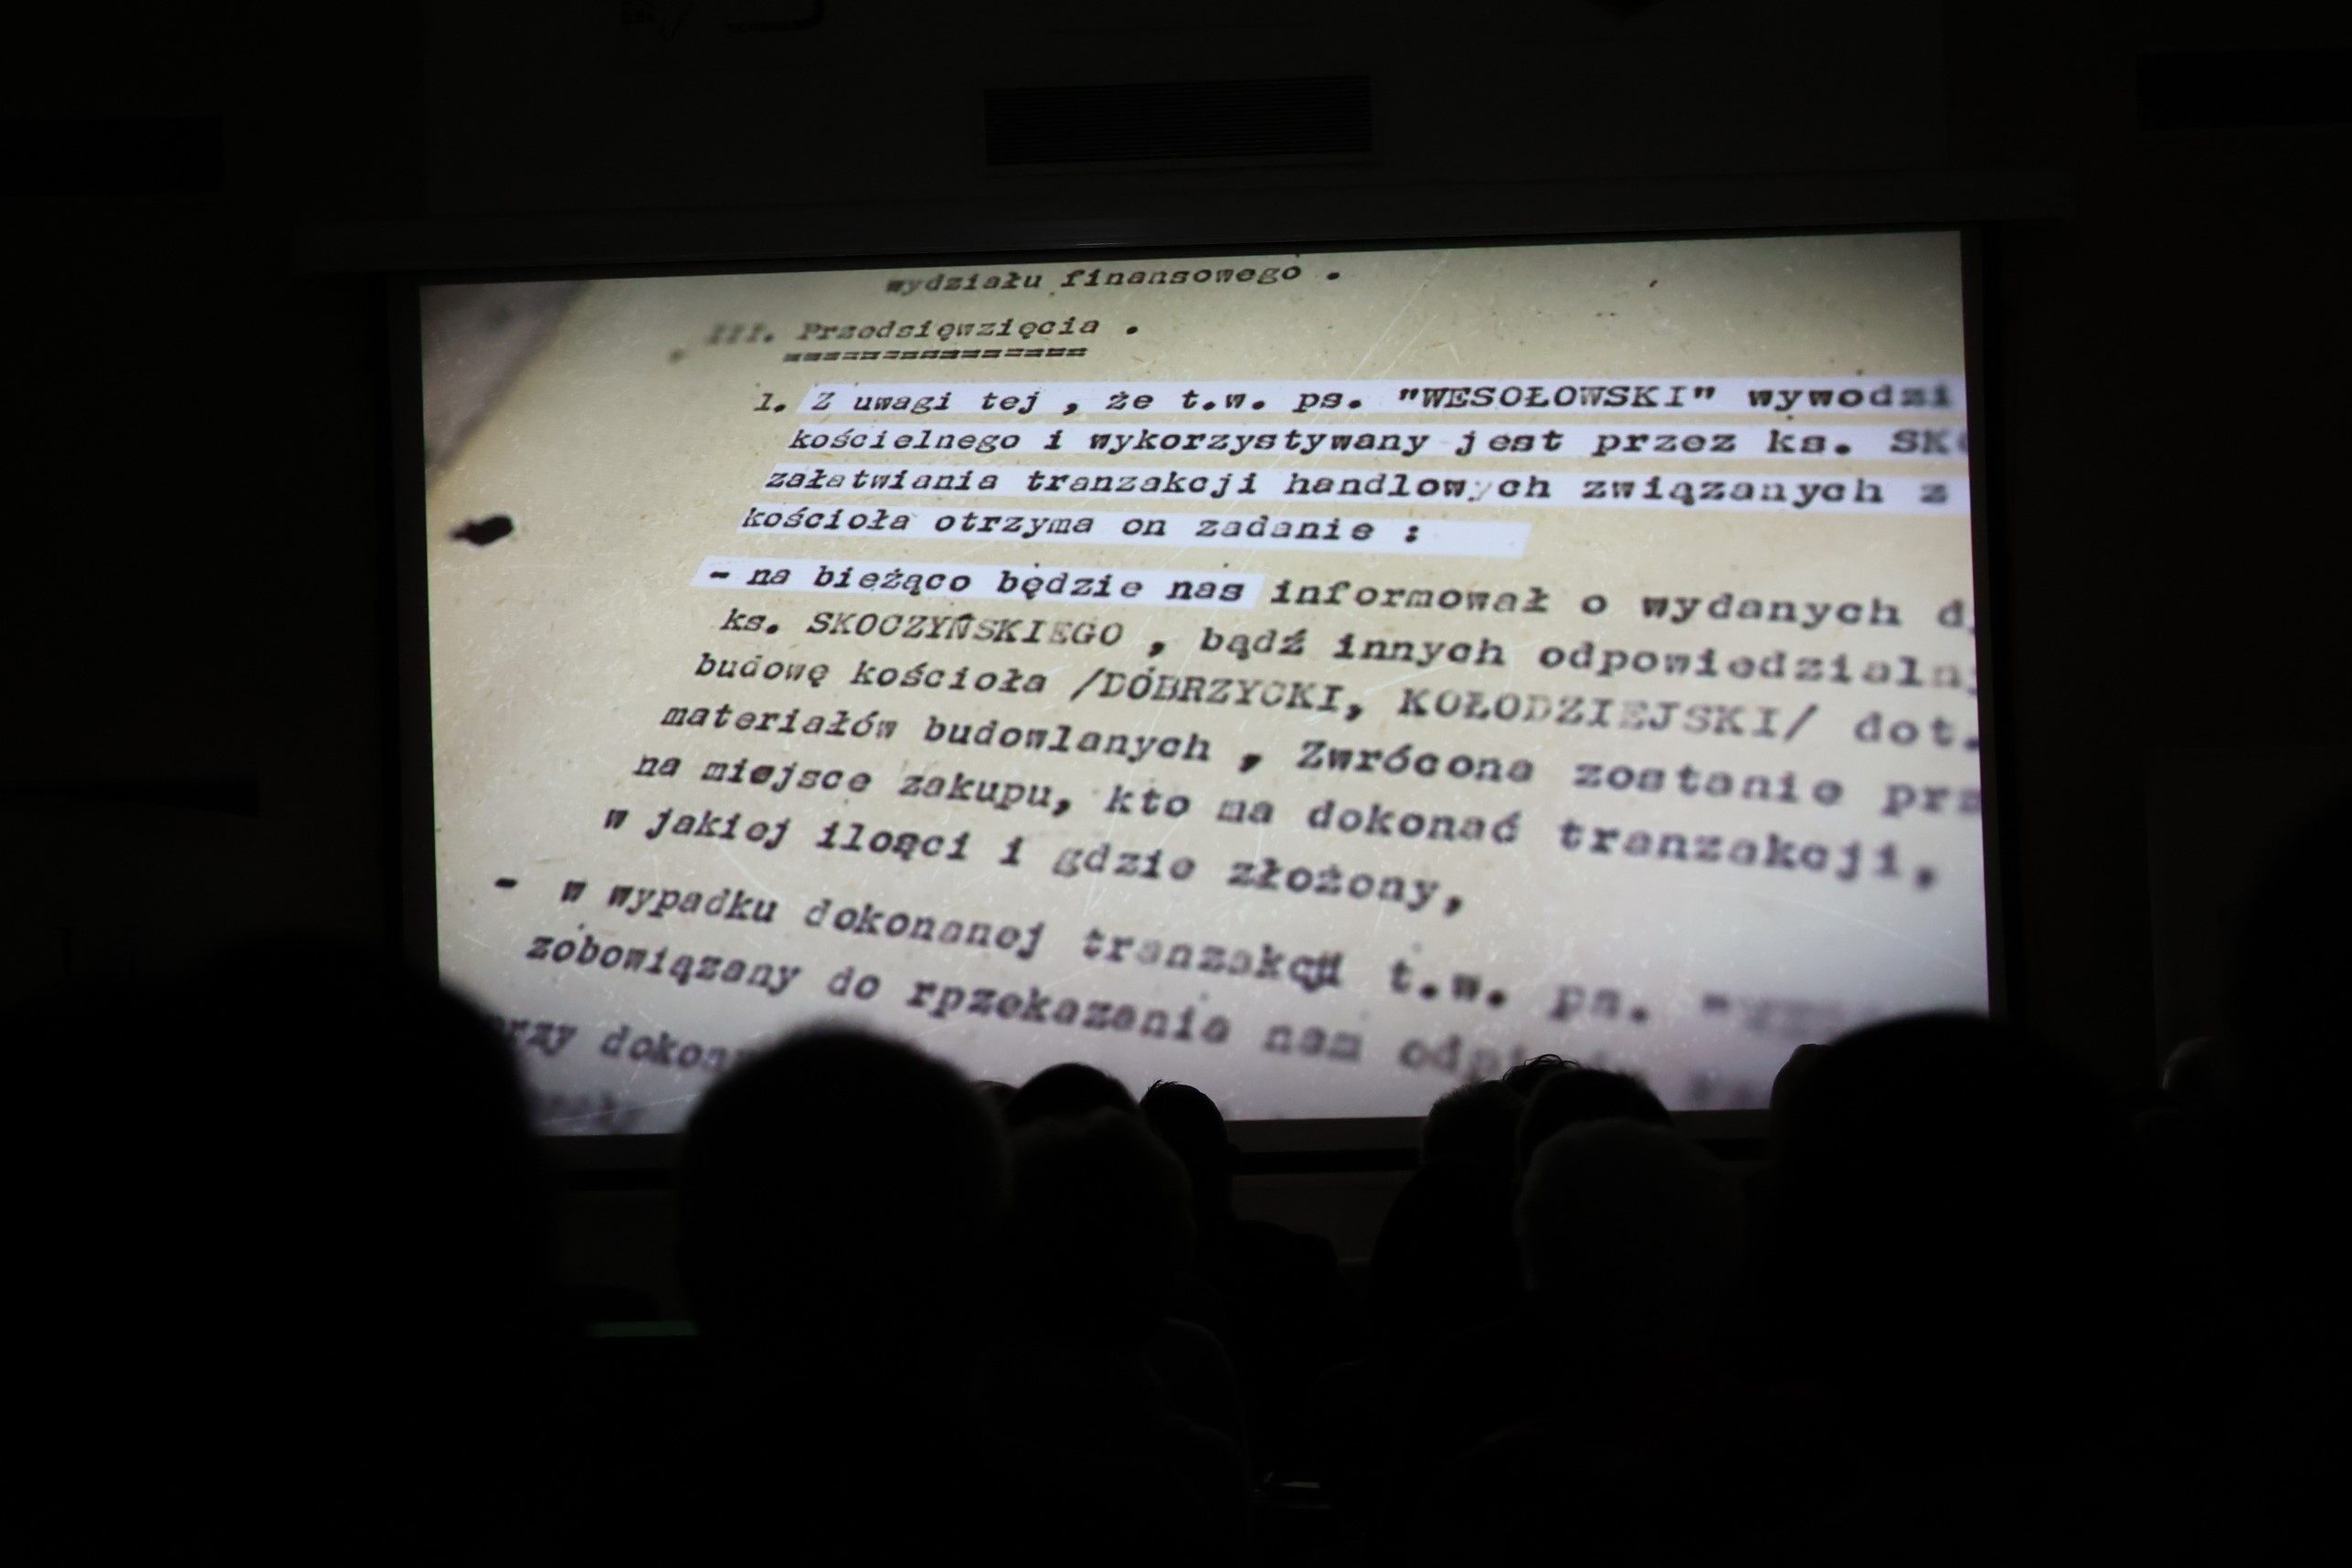 wydziału finansowego .
III. Przedsięwzięcia .
================
1. Z uwagi tej , że t.w. ps. "WESOŁOWSKI" wywodzi
kościelnego i wykorzystywany jest przez ks. SK
załatwiania tranzakcji handlowych związanych z
kościoła otrzyma on zadanie :
- na bieżąco będzie nas informował o wydanych d
ks. SKOCZYŃSKIEGO , bądź innych odpowiedzialn
budowę kościoła /DOBRZYCKI, KOŁODZIEJSKI/ dot.
materiałów budowlanych , Zwrócona zostanie prz
na miejsce zakupu, kto ma dokonać tranzakcji,
w jakiej ilości i gdzie złożony,
- w wypadku dokonanej tranzakcji t.w. ps.
zobowiązany do rpzekazania nam
przy dokon